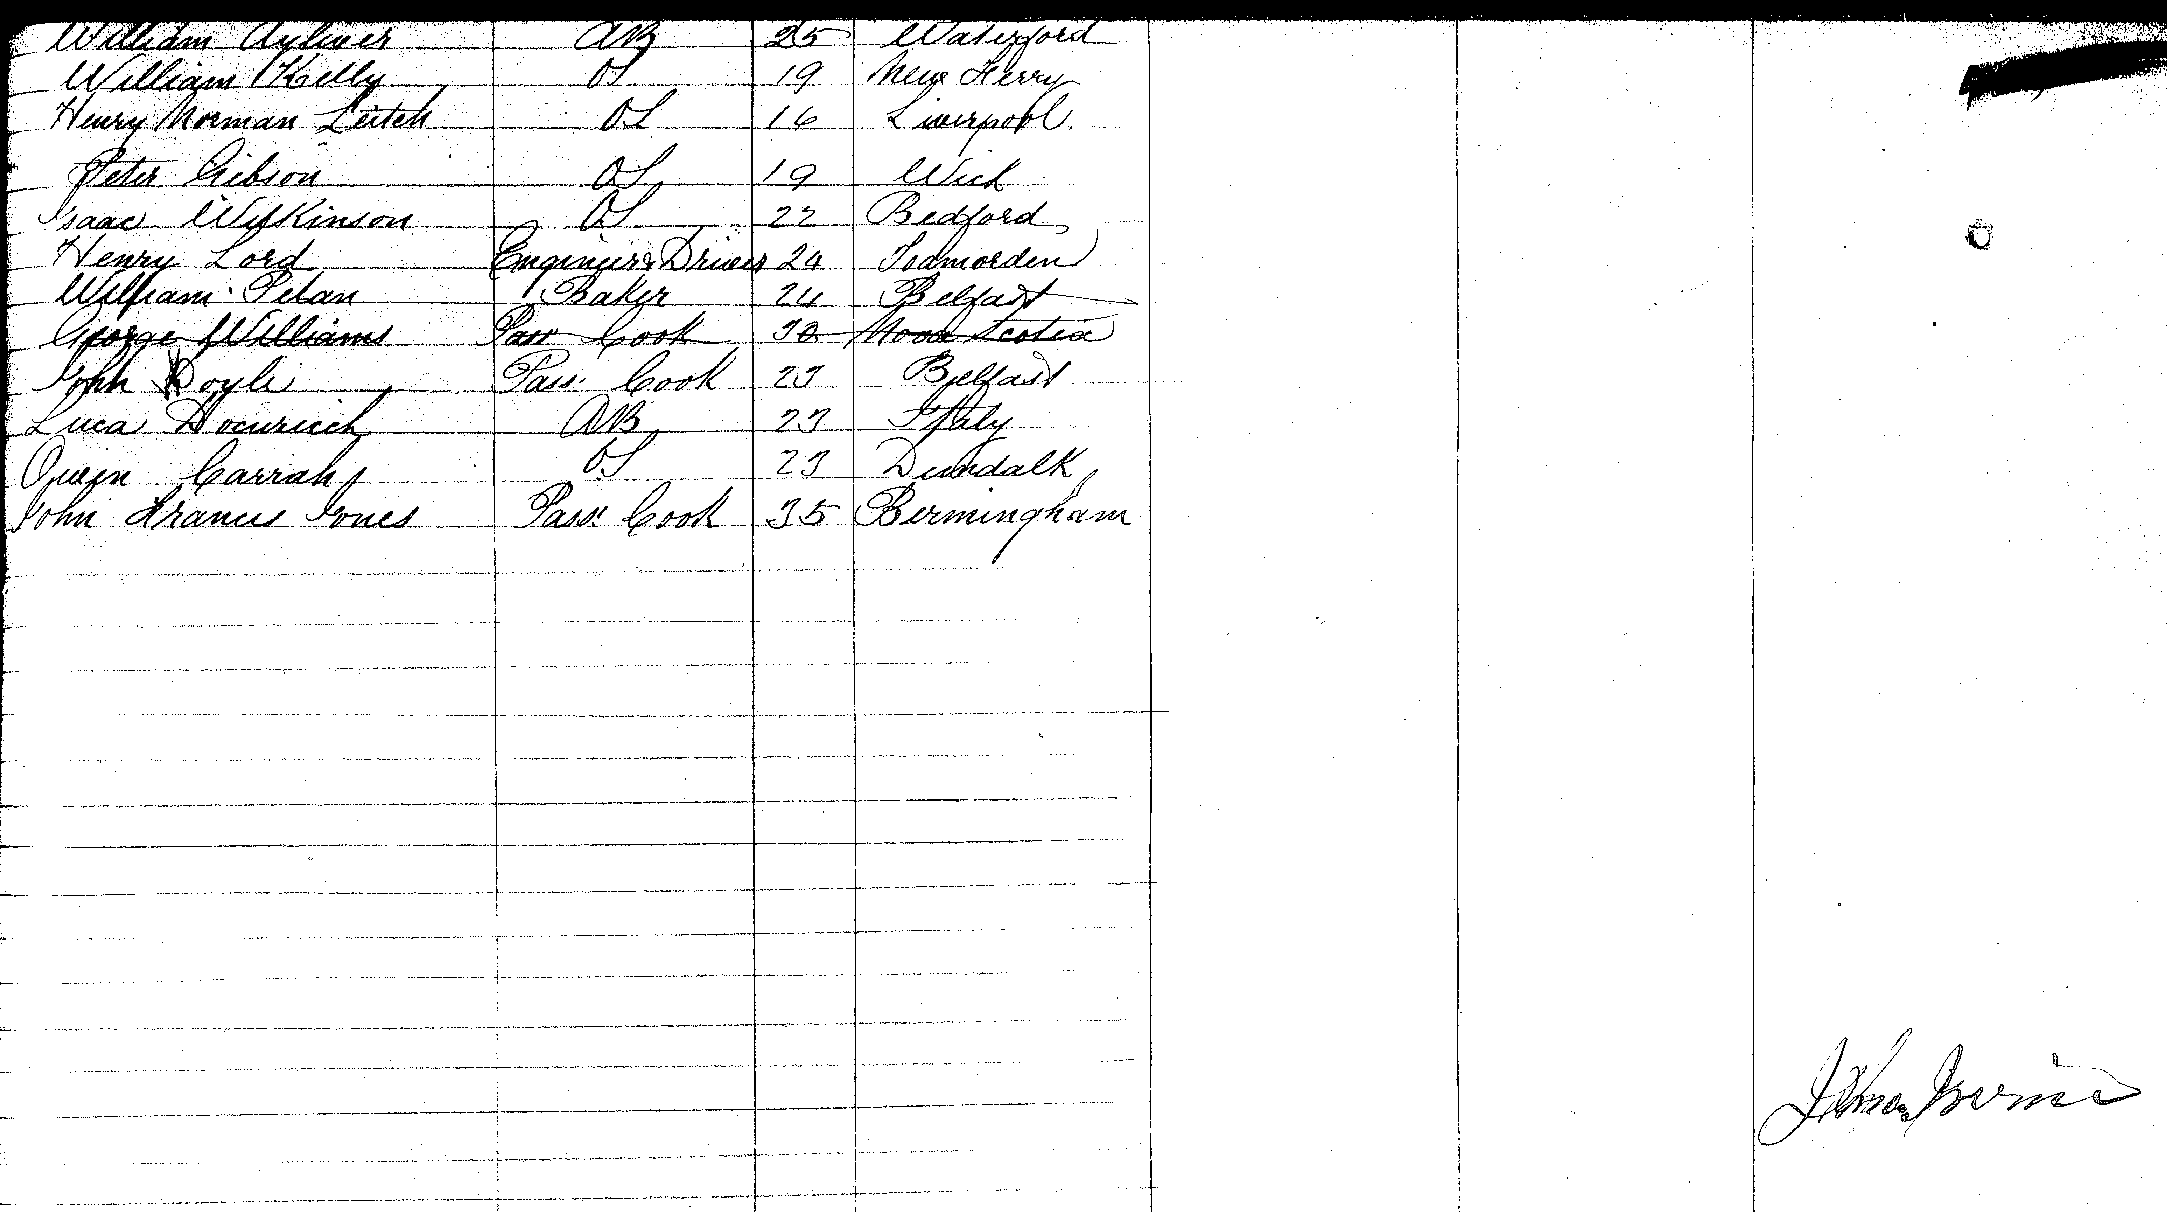 William Aylmer AB 25 Waterford
William Kelly OS 19 New Ferry
Henry Norman Leitch OS 16 Liverpool.
Peter Gibson OS 19 Wick
Isaac Wilkinson OS 22 Bedford
Henry Lord Engineer & Driver Todmorden
William Petan Baker 24 Belfast
George Williams Pass Cook 30 Nova Scotia
John Doyle Pass. Cook 23 Belfast
Luca AB 23 Italy
Owen Carrah OS 23 Dundalk
John Francis Jones Pass. Cook 35 Birmingham